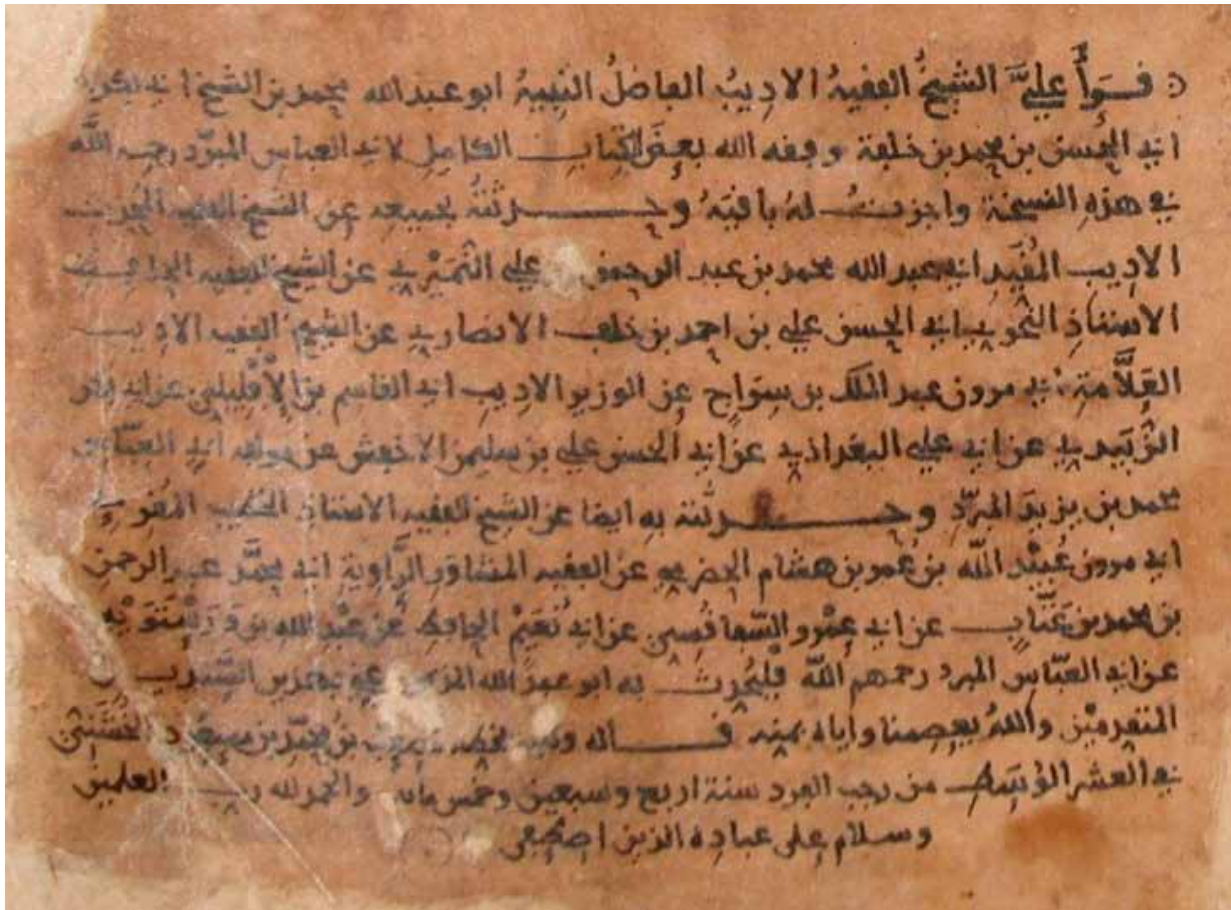 قـرأ عليَّ الشيخُ الفقيهُ الاديبُ الفاضلُ النبيهُ ابو عبد الله محمد بن الشيخ
ابي الحسن بن محمد بن خلفة وفقه الله بعض كتاب الكامل لابي العباس المبرّد رحمه الله
في هذه النسخة واجزت له باقيه وحـدثته بجميعه عن الشيخ الفقيه
الاديب ابي عبد الله محمد بن عبد الرحمن علي النميري عن الشيخ الفقيه
الاستاذ النحوي ابي الحسن علي بن احمد بن خلف الانصاري عن الشيخ الفقيه الاديب
العلَّامة ابي مرون عبد الملك بن سراج عن الوزير الاديب ابي القاسم بن الإفليلي عن ابي
الزُّبيدي عن ابي علي البغداذي عن ابي الحسن علي بن سليمن الاخفش عن ابي العبّاس
محمد بن يزيد المبرّد وحـدثته به ايضا عن الشيخ الفقيه الاستاذ الخطيب المقرئ
ابي مرون عُبيْد الله بن عمر بن هشام الحضرمي عن الفقيه المشاور الراوية ابي محمّد عبد الرحمن
بن محمد بن عتّاب عن ابي عمرو السّفاقسي عن ابي نُعَيْم الحافظ عن عبد الله بن
عن ابي العبّاس المبرد رحمهم الله فليُحدث به ابو عبد الله
والله يعصمنا واياه بمنه قـاله بخطه مصعب بن محمّد بن مسعود الخُشَنيّ
في العشر الوُسَط من رجب الفرد سنة اربع وسبعين وخمس مائة والحمد لله رب العلمين
وسلام على عباده الذين اصطفى